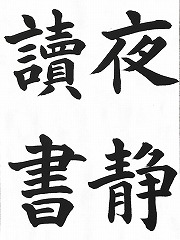 夜静
讀書